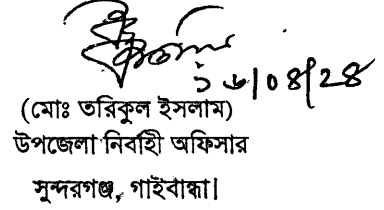 ১৬/০৪/২৪
(মোঃ তরিকুল ইসলাম)
উপজেলা নির্বাহী অফিসার
সুন্দরগঞ্জ, গাইবান্ধা।